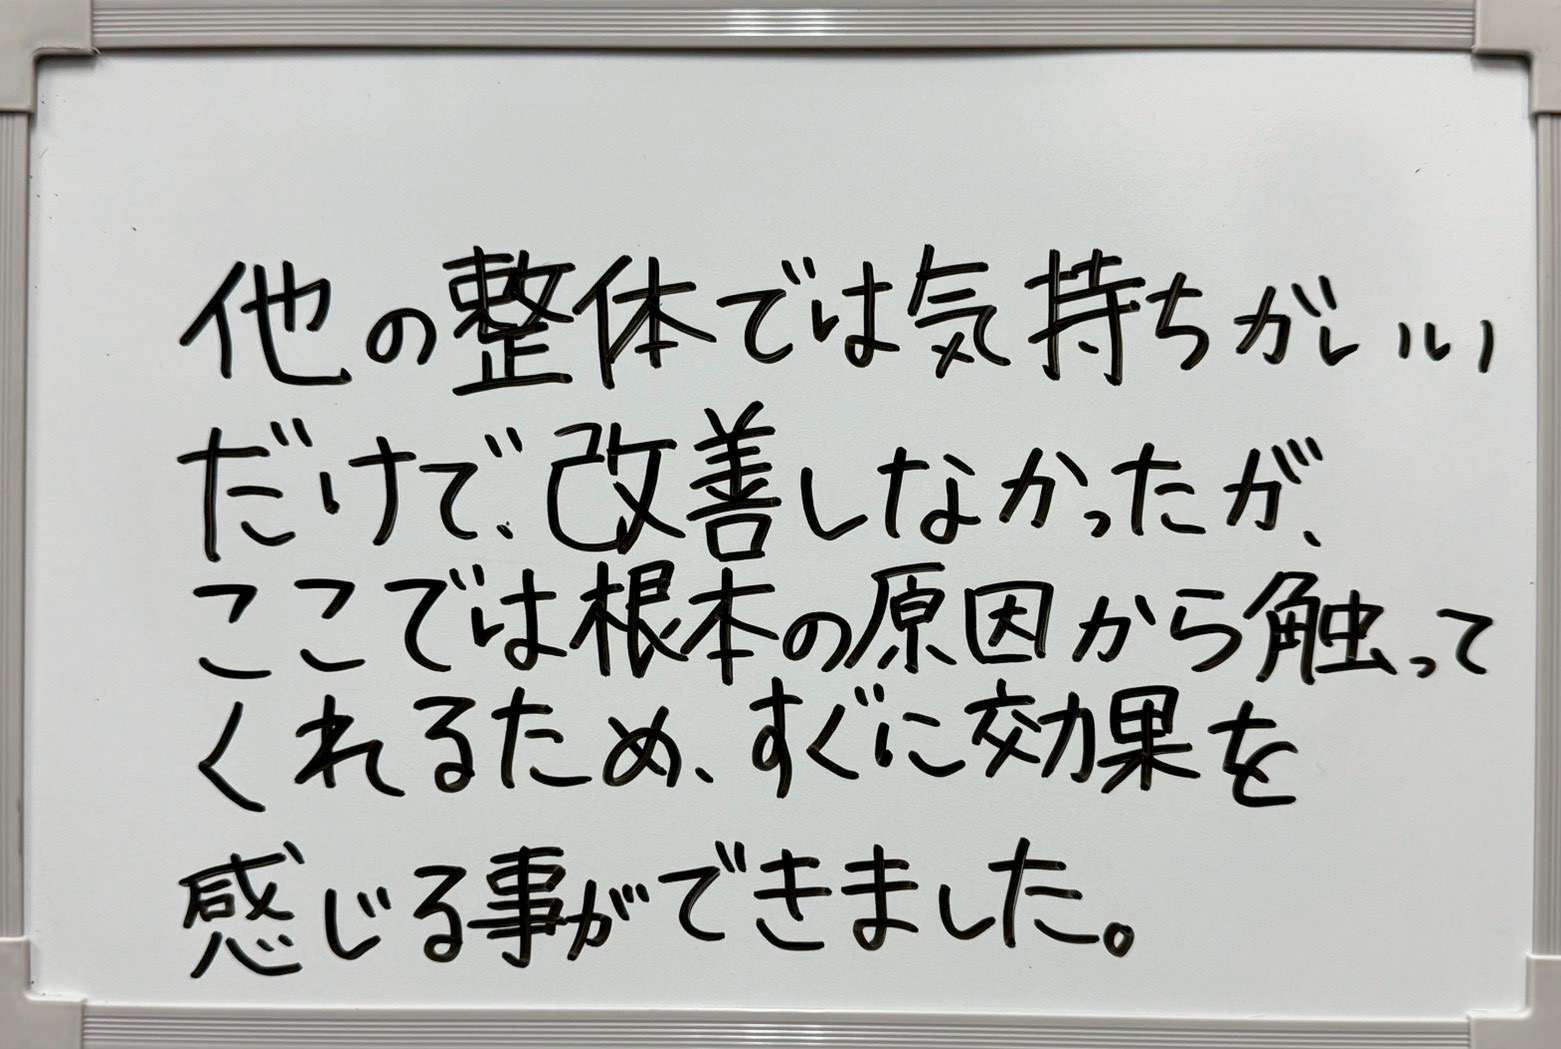 他の整体では気持ちがいい
だけで、改善しなかったが、
ここでは根本の原因から触って
くれるため、すぐに効果を
感じる事ができました。